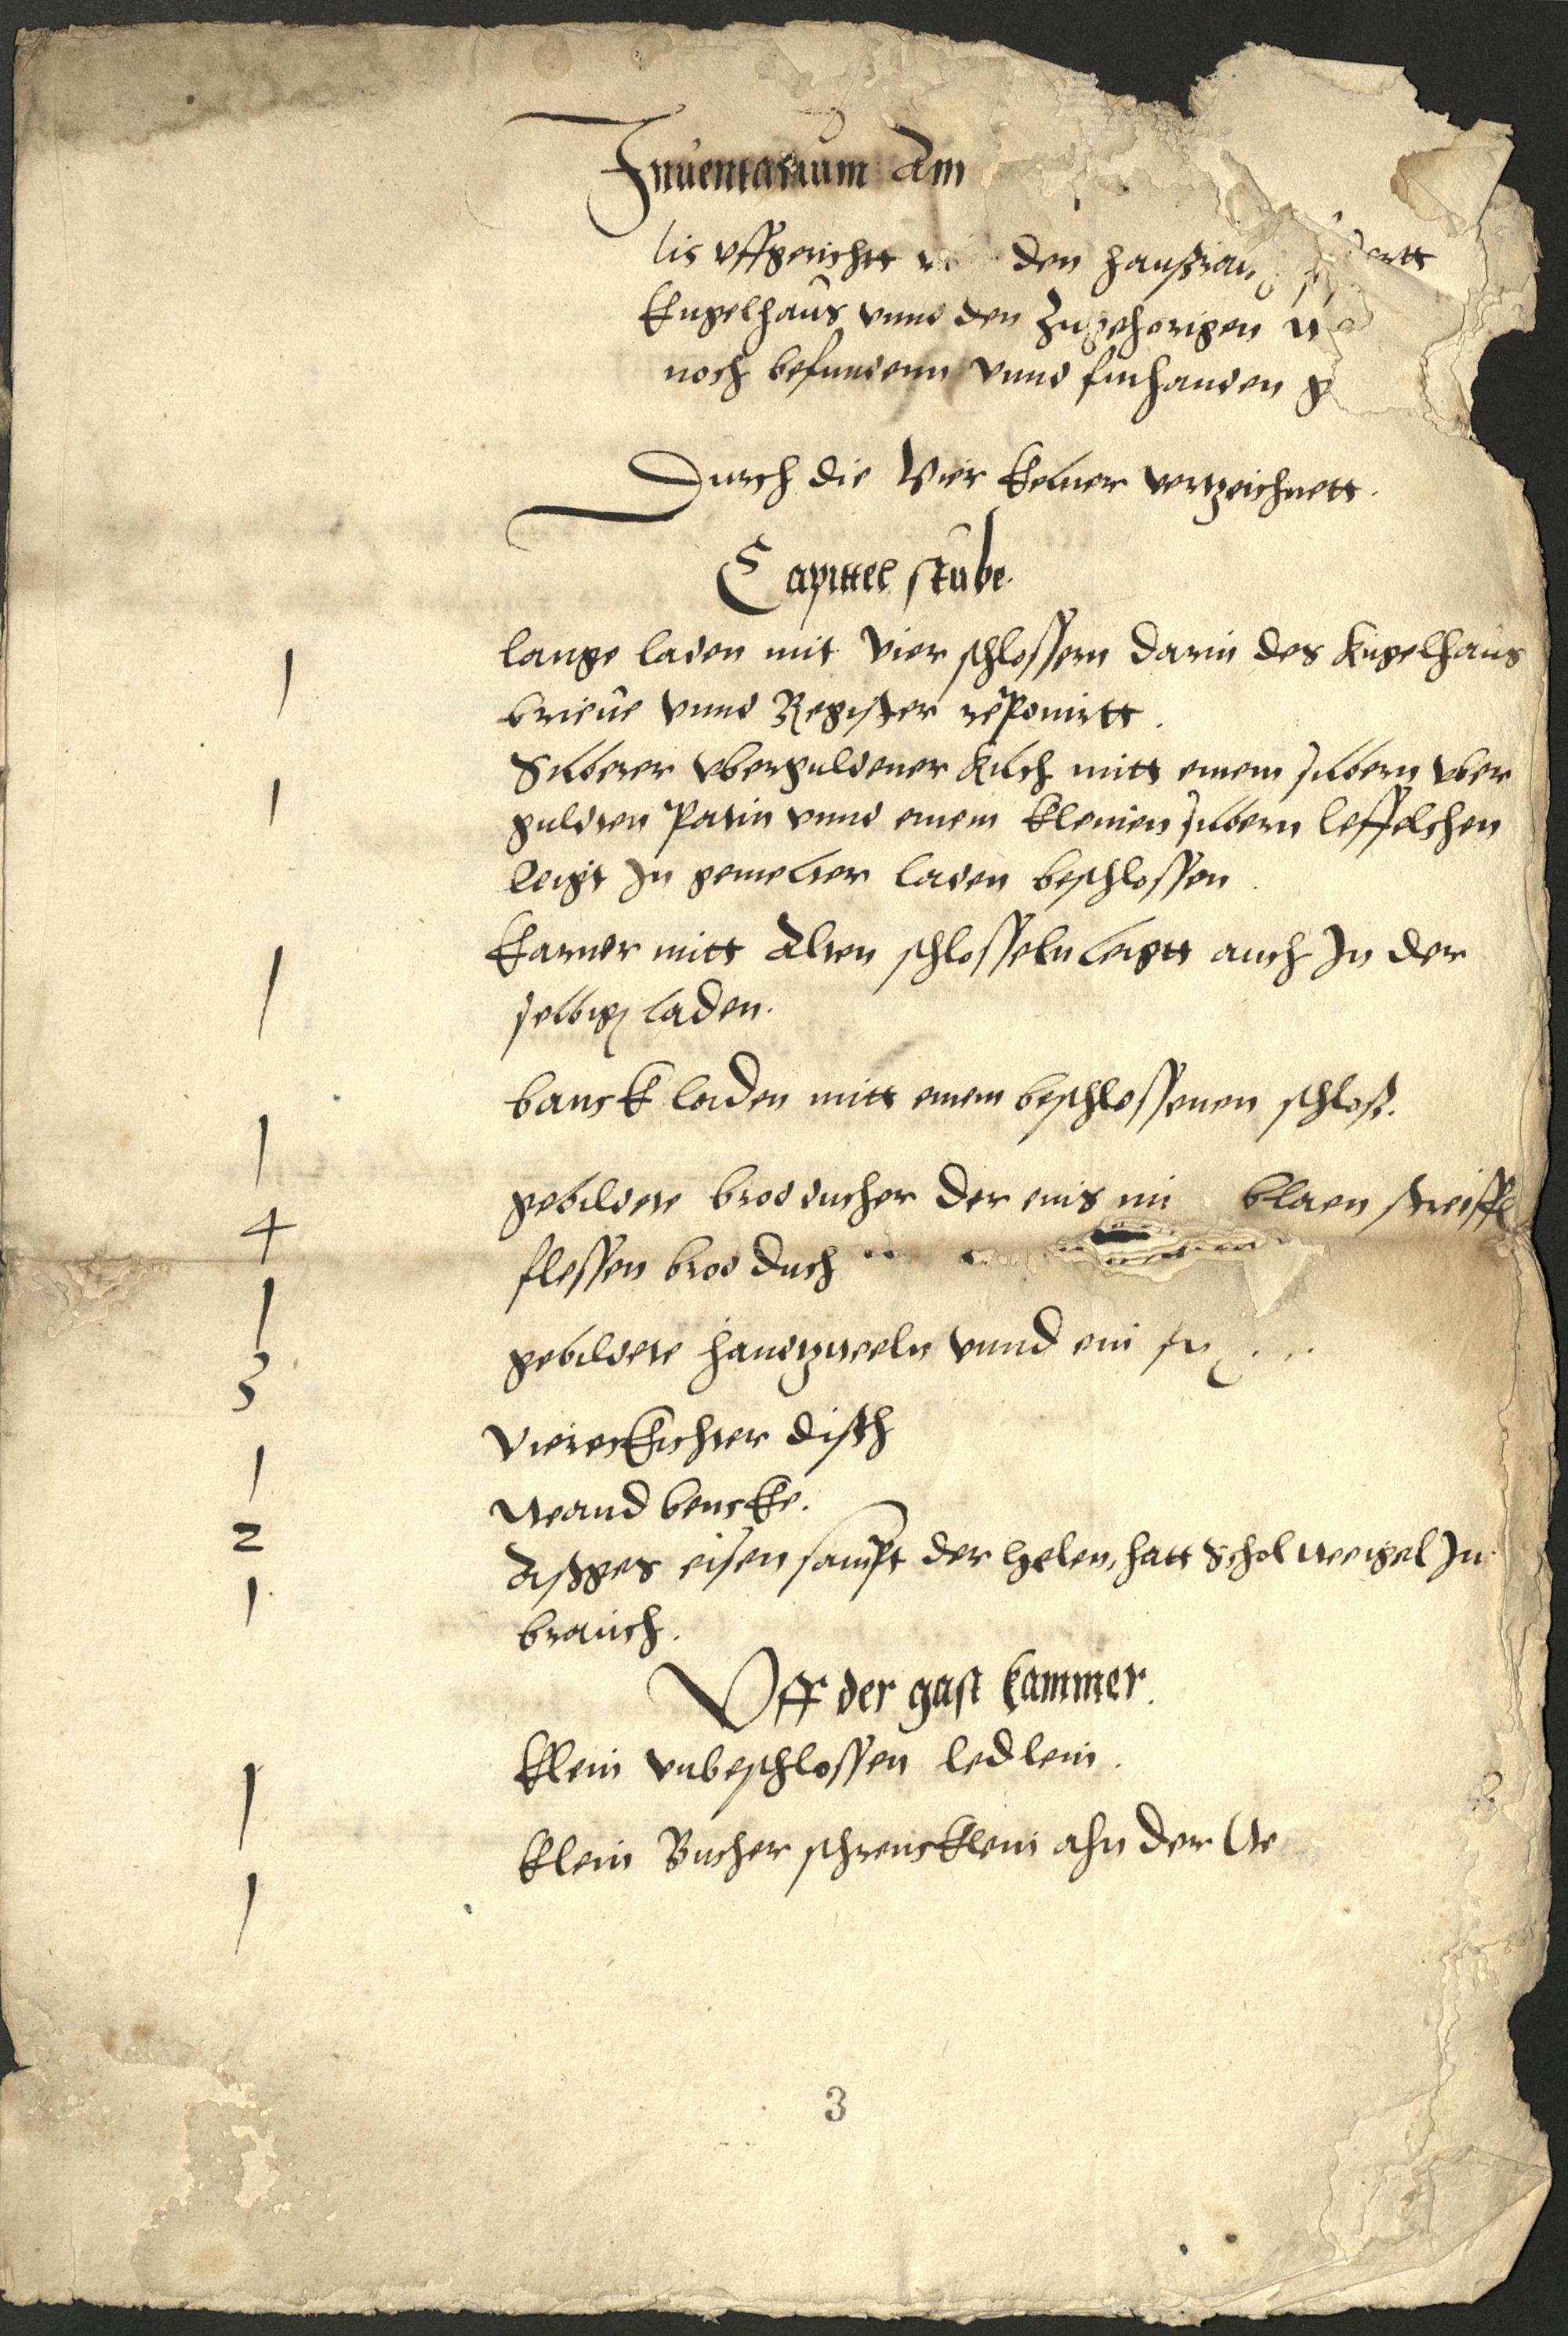 Inuentarium Am
lis vffgericht den haußrau
Kugelhaus vnnd den Zugehorigen
noch befundenn vnnd furhanden
Durch die Vier Kelner vertzeichnett.
Capittel stube.
1 lange laden mit vier schlossern darin des Kugelhaus
brieue vnnd Register reponirtt.
1 Silberer vberguldener Kilch mitt einem silbern vber
guldten Patin vnnd einem kleinen silbern leffelchen
leigt In gemelter laden beschlossen
1 Karner mitt Alten schlosseln leigtt auch In der
selbig laden.
1 banck laden mitt einem beschlossenen schloß.
4 gebildete brodducher der eins mi blaen streiffl
1 flessen brod duch
3 gebildete handtzweeln vnnd ein
1 Viereckichter disch
2 wand bencke.
1 eisen sampt der helen, hatt Schol weigel In
brauch.
Vff der gast kammer.
1 klein vnbeschlossen ledlein.
1 klein Bucher schrencklein ahn der We
3